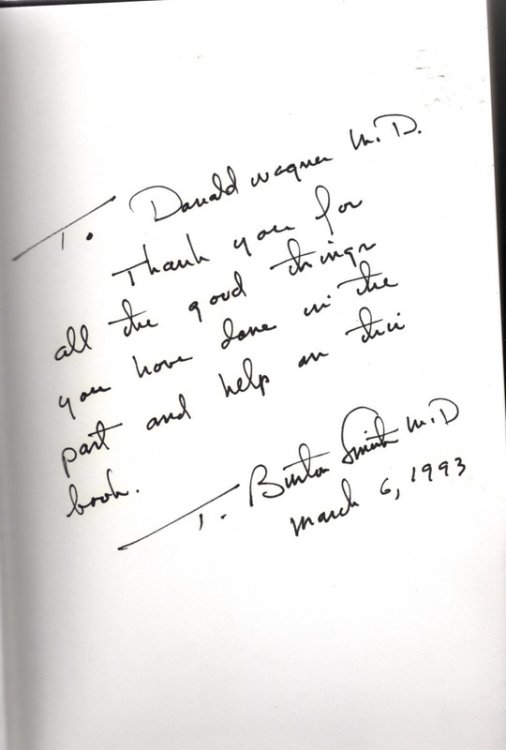 To Donald Wagner M.D.
Thank you for
all the good things
you have done in the
past and help on this
book.
T. Burton Smith M.D
March 6, 1993